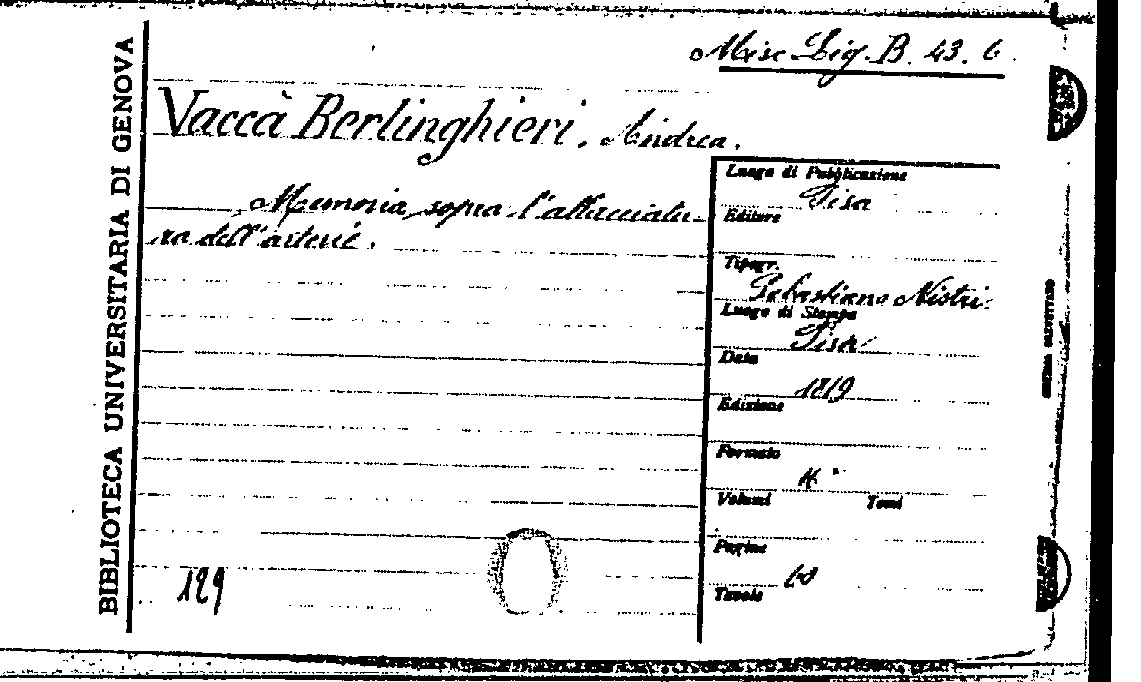 Misc Lig. B. 43. 6.
BIBLIOTECA UNIVERSITARIA DI GENOVA
Vaccà Berlinghieri, Andrea.
Memoria sopra l'allacciatu-
ra dell'arterie.
Luogo di Pubblicazione
Pisa
Editore
Tipogr.
Sebastiano Nistri
Luogo di Stampa
Pisa
Data
1819
Edizione
Formato
Volumi Tomi
Pagine
Tavole
129